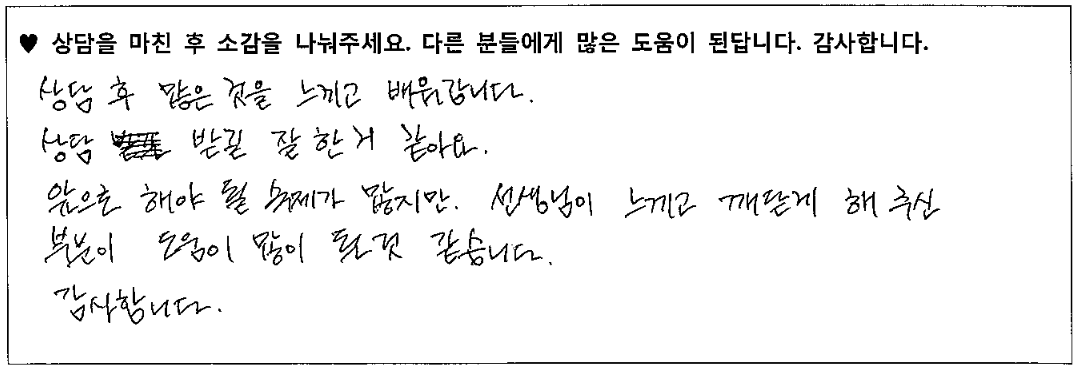 ♥ 상담을 마친 후 소감을 나눠주세요. 다른 분들에게 많은 도움이 된답니다. 감사합니다.
상담 후 많은 것을 느끼고 배워갑니다.
상담 받길 잘 한거 같아요.
앞으로 해야 될 숙제가 많지만. 선생님이 느끼고 깨닫게 해 주신
부분이 도움이 많이 될것 같습니다.
감사합니다.